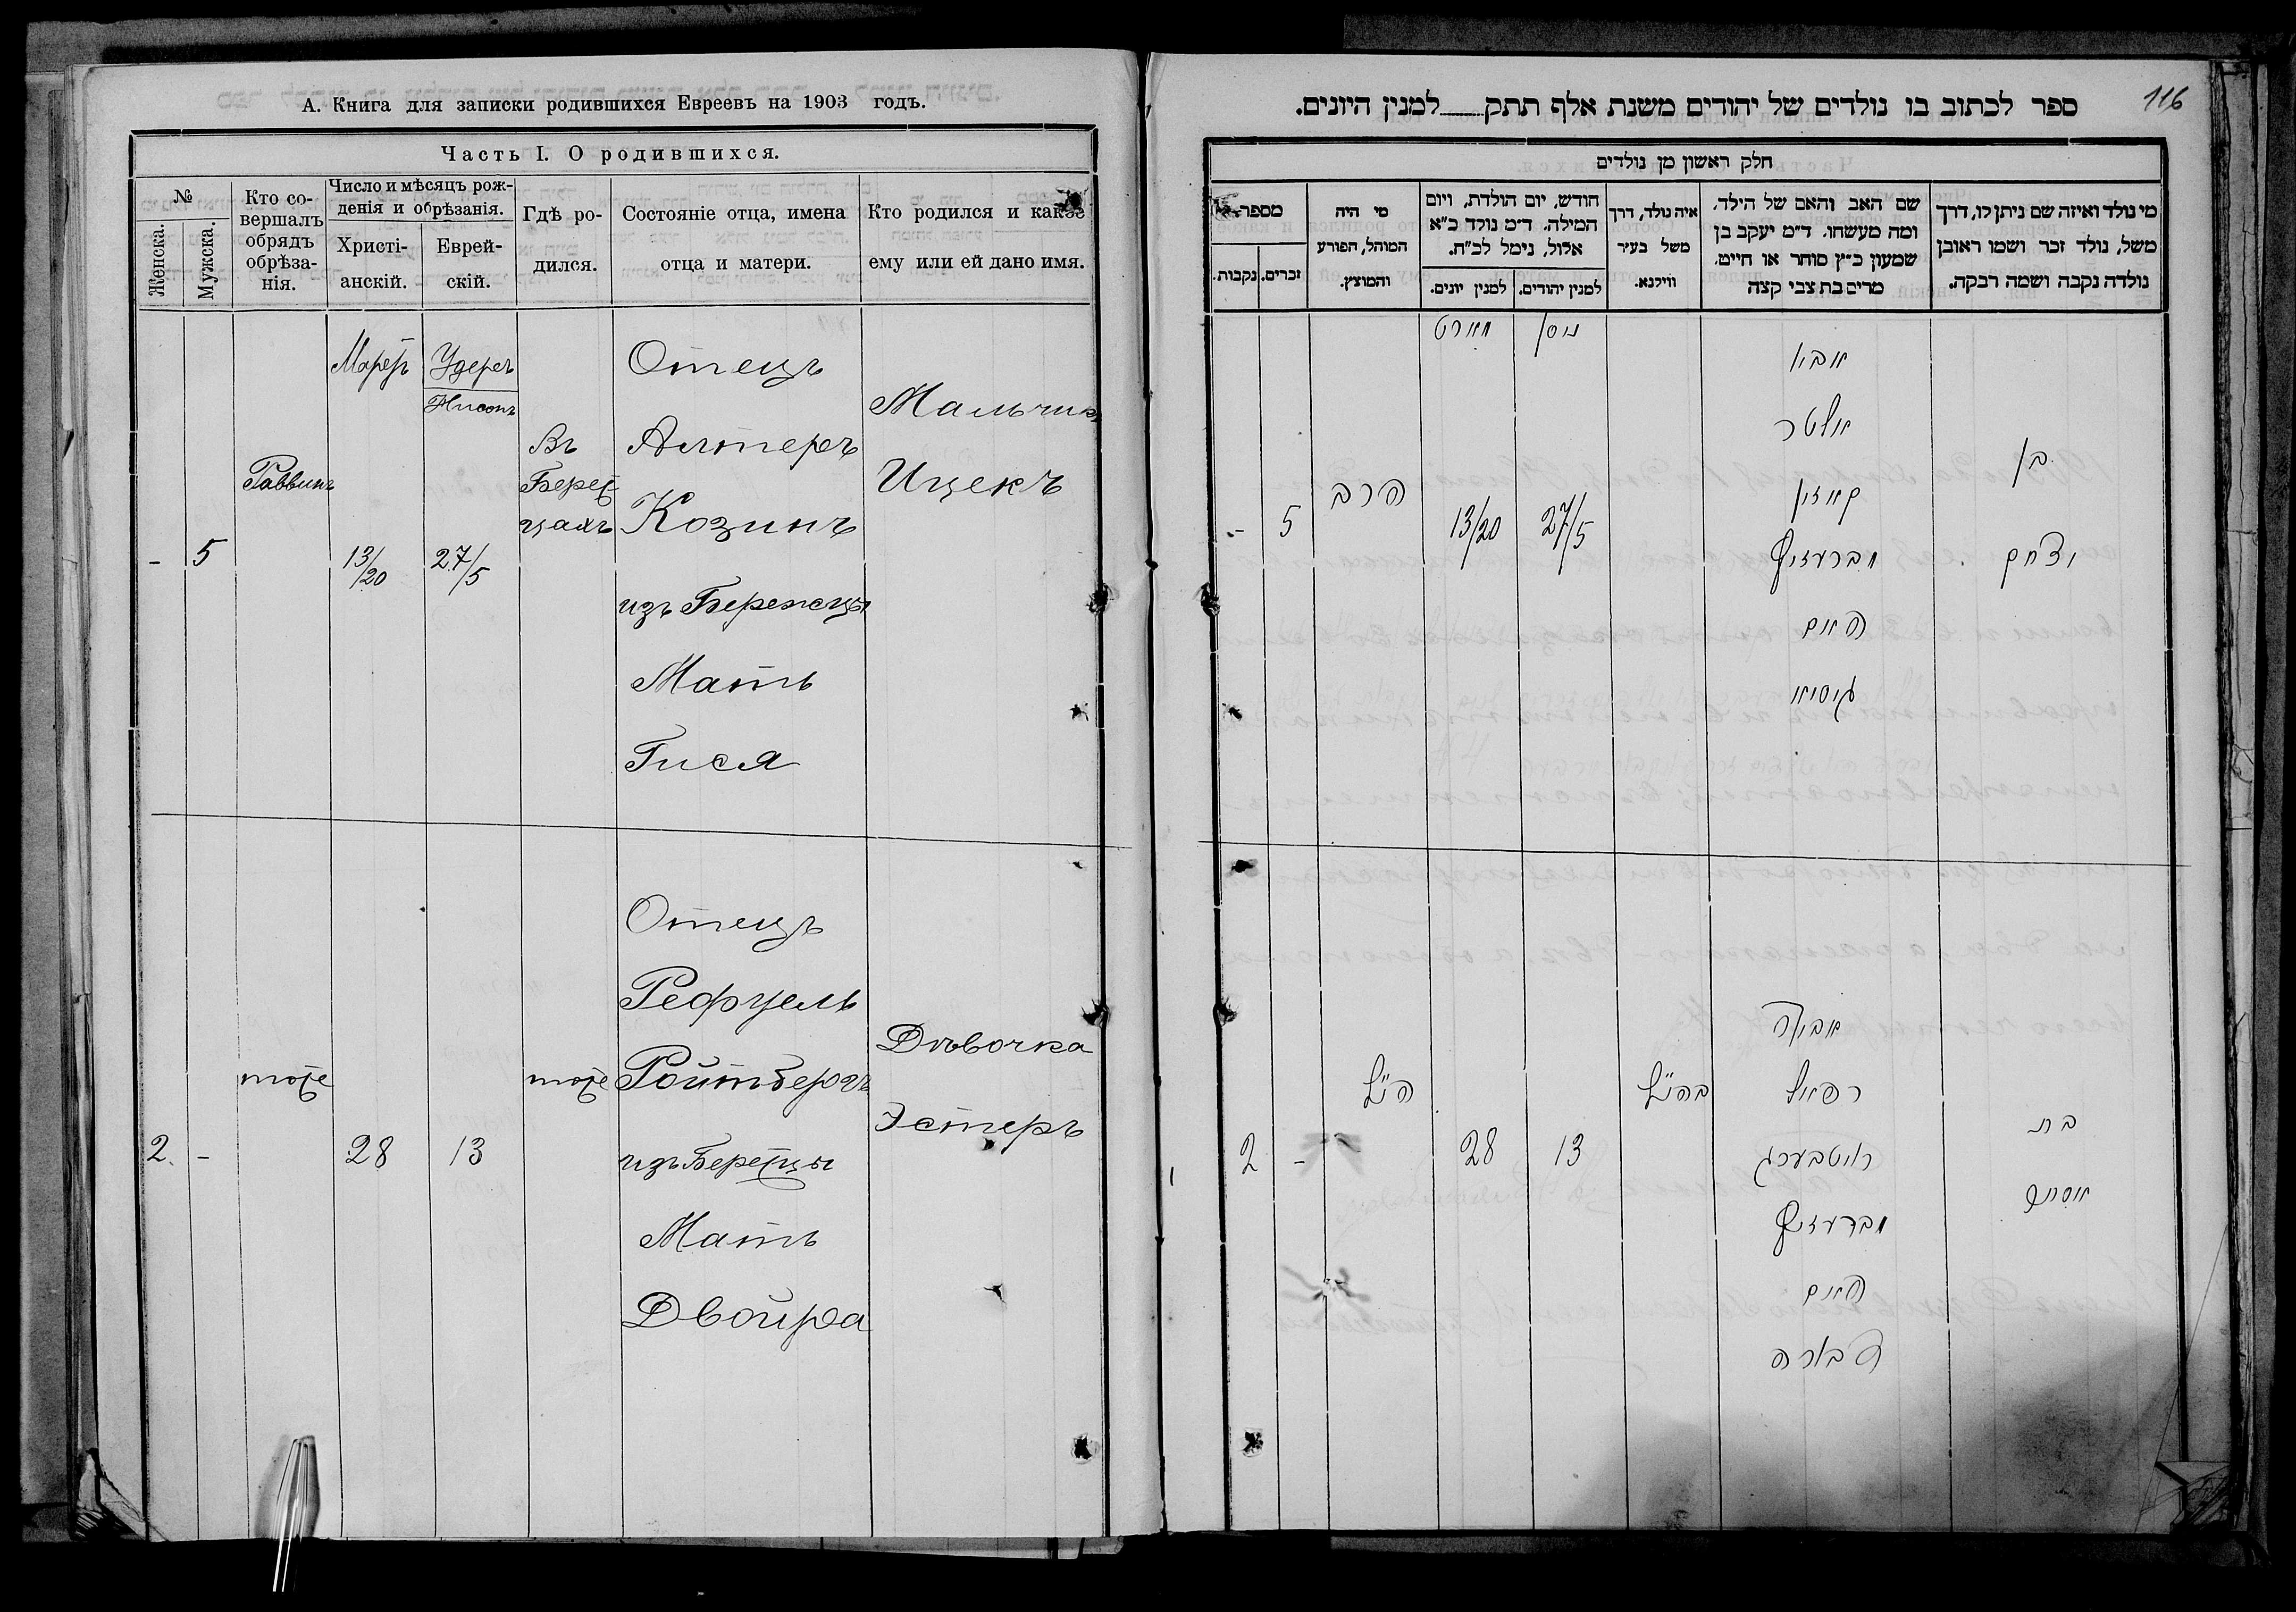 А. Книга для записки родившихся Евреевъ на 1903 годъ.
Часть I. О родившихся.
№
Женска.
Мужска.
Кто со-
вершалъ
обрядъ
обрѣза-
нія.
Число и мѣсяцъ рож-
денія и обрѣзанія.
Христі-
анскій.
Еврей-
скій.
Гдѣ ро-
дился.
Состояніе отца, имена
отца и матери.
Кто родился и какое
ему или ей дано имя.
-
5
Раввинъ
Мартъ
13/20
Удеръ
Нисонъ
27/5
Въ
Береж
цахъ
Отецъ
Алтеръ
Козинъ
изъ Бережцы
Мать
Гися
Мальчикъ
Ицекъ
2.
-
тоже
28
13
тоже
Отецъ
Рефуель
Ройтбергъ
изъ Бережцы
Мать
Двойра
Дѣвочка
Эстеръ
116
ספר לכתוב בו נולדים של יהודים משנת אלף תתק למנין היונים.
חלק ראשון מן נולדים
מי נולד ואיזה שם ניתן לו, דרך
משל, נולד זכר ושמו ראובן
נולדה נקבה ושמה רבקה.
שם האב והאם של הילד,
ומה מעשהו. ד״מ יעקב בן
שמעון כ״ץ סוחר או חייט.
מרים בת צבי קצה
איה נולד, דרך
משל בעיר
ווילנא.
חודש, יום הולדת, ויום
המילה. ד״מ נולד כ״א
אלול, נימל לכ״ח.
למנין יהודים.
למנין יונים.
מי היה
המוהל, הפורע
והמוצץ.
מספר
זכרים.
נקבות.
בן
יצחק
אביו
אלטר
קאזין
מברעזיץ
האם
גוסיא
ניסן
27/5
מארט
13/20
הרב
5
-
בת
אסתר
אביה
רפאל
רויטבערג
מברעזיץ
האם
דבורה
בהנ״ל
13
28
הנ״ל
-
2